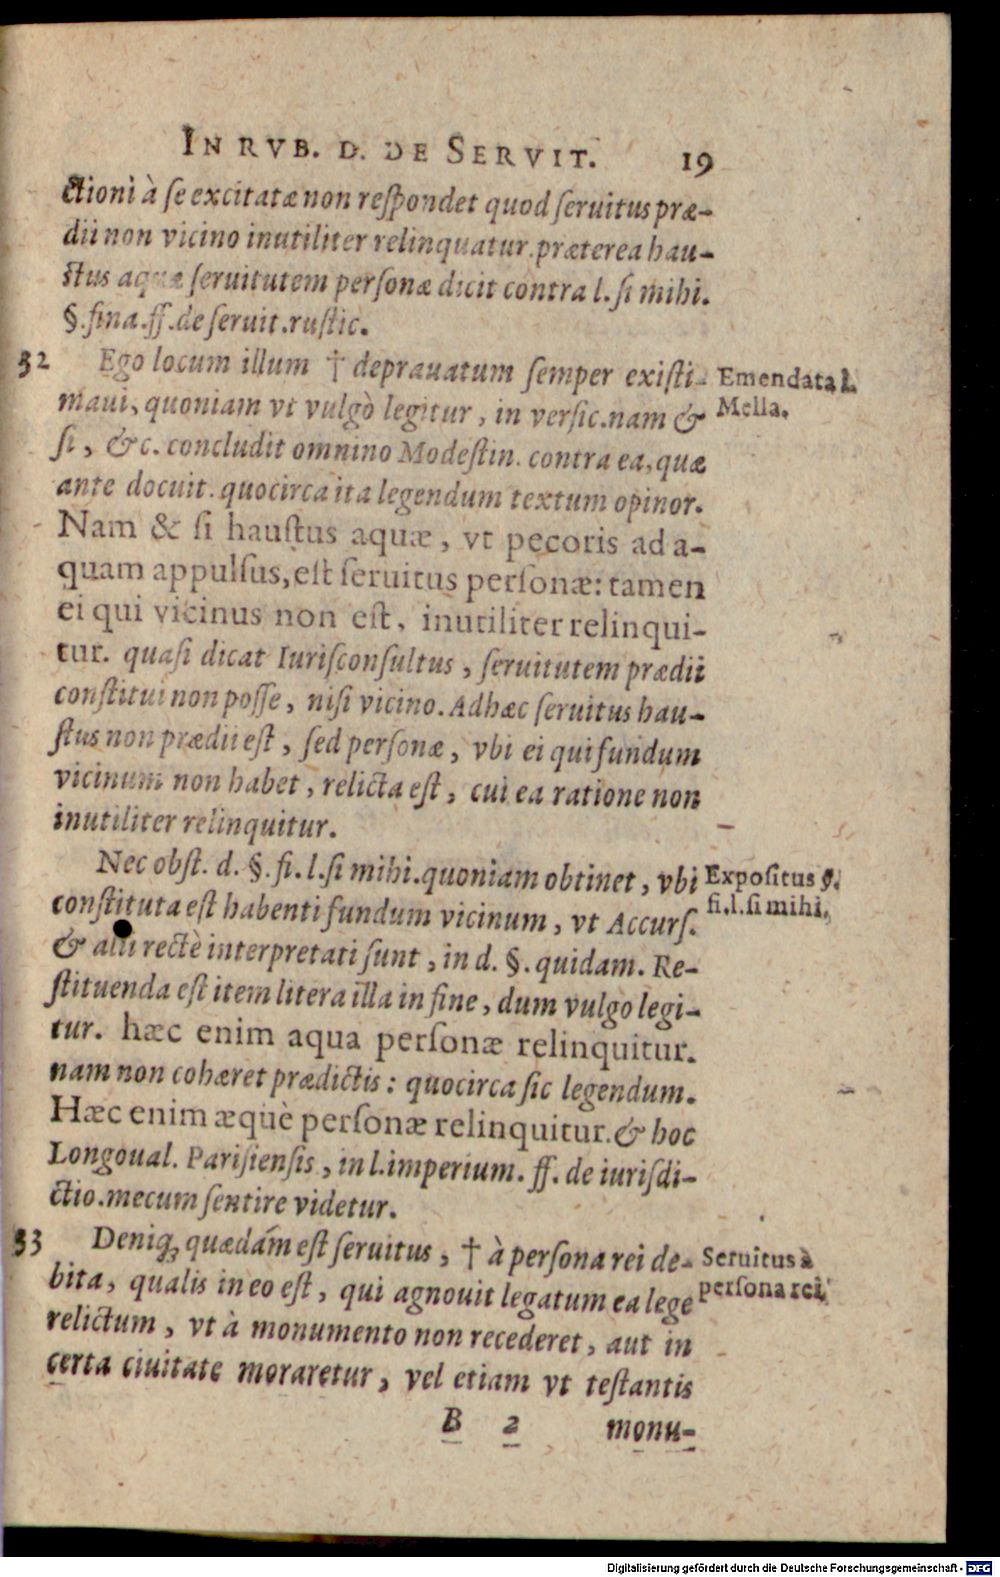 IN RVB. D. DE SERVIT. 19
ctioni à se excitatæ non respondet quod seruitus præ-
dii non vicino inutiliter relinquatur. præterea hau-
stus aquæ seruitutem personæ dicit contra l. si mihi.
§. fina. ff. de seruit. rustic.
32 Ego locum illum † deprauatum semper existi- Emendata l.
maui, quoniam vt vulgò legitur, in versic. nam & Mella.
si, &c. concludit omnino Modestin. contra ea, quæ
ante docuit. quocirca ita legendum textum opinor.
Nam & si haustus aquæ, vt pecoris ad a-
quam appulsus, est seruitus personæ: tamen
ei qui vicinus non est, inutiliter relinqui-
tur. quasi dicat Iurisconsultus, seruitutem prædii
constitui non posse, nisi vicino. Ad hæc seruitus hau-
stus non prædii est, sed personæ, vbi ei qui fundum
vicinum non habet, relicta est, cui ea ratione non
inutiliter relinquitur.
Nec obst. d. §. fi. l. si mihi. quoniam obtinet, vbi Expositus §.
constituta est habenti fundum vicinum, vt Accurs. fi. l. si mihi,
& alii rectè interpretati sunt, in d. §. quidam. Re-
stituenda est item litera illa in fine, dum vulgo legi-
tur. hæc enim aqua personæ relinquitur.
nam non cohæret prædictis: quocirca sic legendum.
Hæc enim æquè personæ relinquitur. & hoc
Longoual. Parisiensis, in l. imperium. ff. de iurisdi-
ctio. mecum sentire videtur.
33 Deniq; quædam est seruitus, † à persona rei de- Seruitus à
bita, qualis in eo est, qui agnouit legatum ea lege persona rei
relictum, vt à monumento non recederet, aut in
certa ciuitate moraretur, vel etiam vt testantis
B 2 monu-
Digitalisierung gefördert durch die Deutsche Forschungsgemeinschaft - DFG